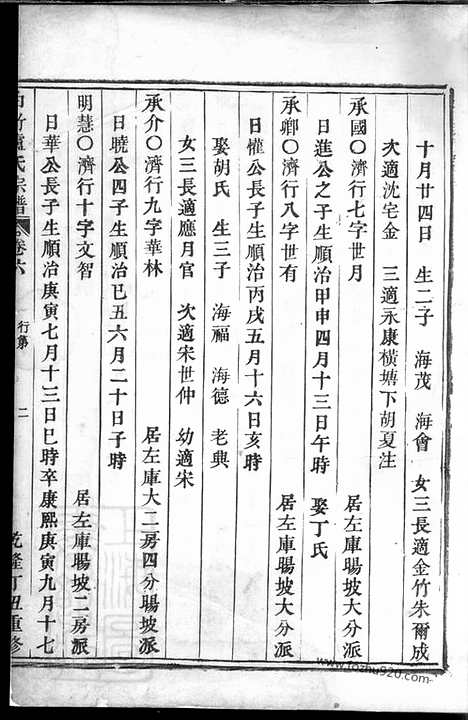 十月廿四日 生二子 海茂 海會 女三長適金竹朱爾成
次適沈宅金 三適永康橫塘下胡夏注
承國〇濟行七字世月 居左庫暘坡大分派
日進公之子生順治甲申四月十三日午時 娶丁氏
承卿〇濟行八字世有 居左庫暘坡大分派
日懽公長子生順治丙戌五月十六日亥時
娶胡氏 生三子 海福 海德 老典
女三長適應月官 次適宋世仲 幼適宋
承介〇濟行九字華林 居左庫大二房四分暘坡派
日曉公四子生順治己丑六月二十日子時
明慧〇濟行十字文智 居左庫暘坡二房派
日華公長子生順治庚寅七月十三日巳時卒康熙庚寅九月十七
竹盧氏宗譜 卷六 行第 二 乾隆丁丑重修
www.fozhu920.com